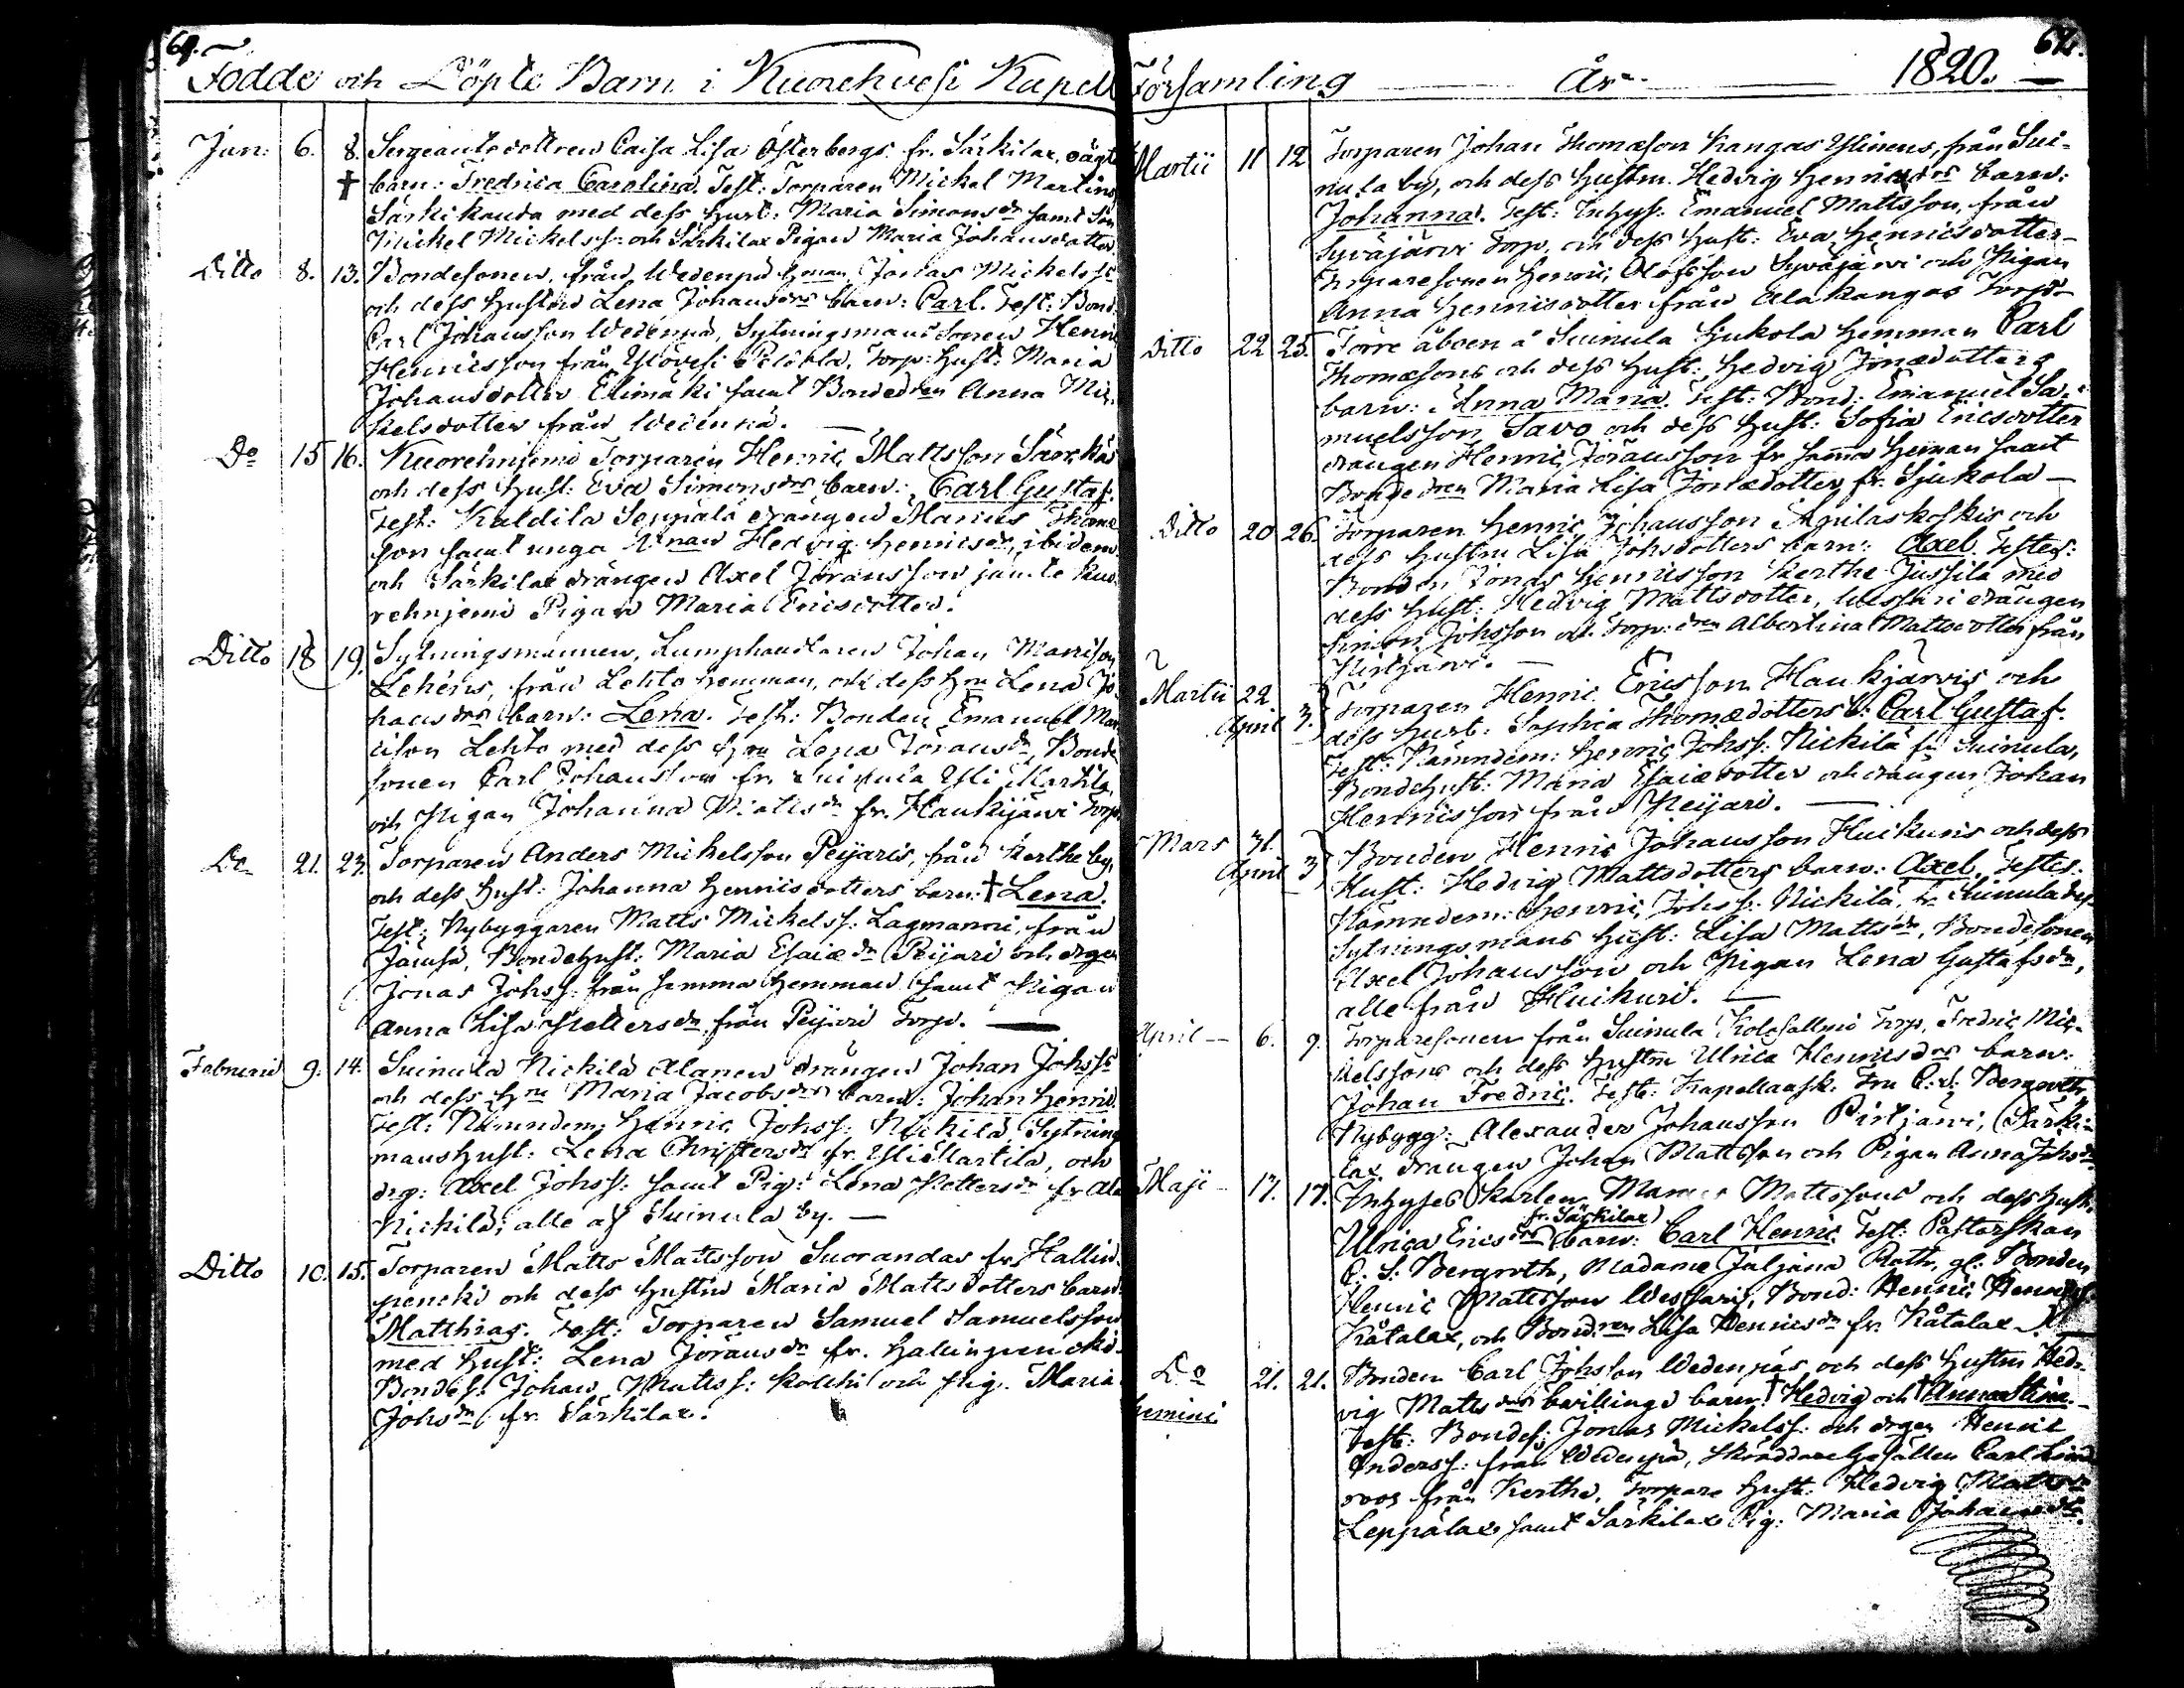 Födde och Döpte Barn i Kuorehvesi Kapell
Jan: 6. 8. Sergeantsdottren Caisa Lisa Österbergs fr. Särkilax, oägta
† barn: Fredrica Carolina. Test: Torparen Michel Martins
Särkikanda med dess hust: Maria Simonsdr samt
Michel Michelss: och Särkilax Pigan Maria Johansdotter
Ditto 8. 13. Bondesonen, från Wedenpä hman Jonas Michelss:
och dess hustru Lena Johansdrs barn: Carl. Test: Bond:
Carl Johansson Wedenpä, Sytningsmans sonen Henric
Henricsson från Ylövesi Torp: hust: Maria
Johansdotter Elimäki samt Bondedren Anna Mic-
kelsdotter från Wedenpä.
Do 15 16. Kuorehnjemi Torparen Henric Mattsson
och dess hust: Eva Simonsdrs barn: Carl Gustaf.
Test: Kaldila Seppälä drängen Marius Thome
son samt unga Hedvig Henricsdr, ibidem
och Särkilax drängen Axel Jöransson jämte Kuo-
rehnjemi Pigan Maria Ericsdotter.
Ditto 18 19. Sytningsmannen, Lumphandlaren Johan
från Lehto hemman, och dess hru Lena Jo-
hansdrs barn: Lena. Test: Bonden Emanuel
Lehto med dess hru Lena Jöransdr, Bonde
sonen Carl Johansson fr. Suinula Yli Martila,
och Pigan Johanna Mattsdr fr. Haukijärvi Torp.
Do 21. 23. Torparen Anders Michelsson Peijaris, från Kerthe by,
och dess hust: Johanna Henricsdotters barn: † Lena.
Test: Nybyggaren Matts Michelss: från
Jämsä, Bondehust: Maria Esaiædr Peijari och drgen
Jonas Johss: från samma hemman samt Pigan
Anna Lisa Pettersdr från Peijari Torp.
Februari 9. 14. Suinula Nickilä Alanen drängen Johan Johss:
och dess hru Maria Jacobsdrs barn: Johan Henric.
Test: Nämndem: Henric Johss: Nickilä, Sytnings
manshust: Lena Christersdr fr. Yli Martila, och
drg: Axel Johss: samt Pig: Lena Pettersdr fr. Ala
Nickilä; alle af Suinula by.
Ditto 10. 15. Torparen Matts Mattsson Suorandas fr. Hallin-
penchi och dess hustru Maria Mattsdotters barn:
Matthias. Test: Torparen Samuel Samuelsson
med hust: Lena Jöransdr fr.
Bondes: Johan Mattss: och Pig. Maria
Johsdr fr. Särkilax.
62.
Församling År 1820.
Martii 11 12 Torparen Johan Thomæson Kangas Ylinens, från Sui-
nula by, och dess hustru Hedvig Henricsdrs barn:
Johanna. Test: Inhys: Emanuel Mattsson, från
Syväjärvi Torp, och dess hust: Eva Henricsdotter
Torparesonen Henric Olofsson Syväjärvi och Pigan
Anna Henricsdotter från Alakangas Torp.
Ditto 22 25. Förre åboen å Suinula Sjukola hemman Carl
Thomæsons och dess hust: Hedvig Jonædotters
barn: Anna Maria. Test: Bond: Emanuel Sa-
muelsson Savo och dess hust: Sofia Ericsdotter
drängen Henric Jöransson fr samma heman samt
Bondedren Maria Lisa Jonædotter fr. Sjukola
Ditto 20 26. Torparen Henric Johansson och
dess hustru Lisa Johsdotters barn: Axel. Testes:
Bonden Jonas Henricsson Kerthe Jussila med
dess hust: Hedvig Mattsdotter, Wessari drängen
Simon Johsson och Torp:dren Albertina Mattsdotter från
Pirtjärvi.
Martii 22 April 3. Torparen Henric Ericsson Haukjärvis och
dess hust: Sophia Thomædotters b: Carl Gustaf.
Test: Nämndem: Henric Johss: Nickilä fr Suinula,
Bondehust: Maria Esaiædotter och drängen Johan
Henricsson från Peijari.
Mars 31. April 3 Bonden Henric Johansson Huikuris och dess
Hust: Hedvig Mattsdotters barn: Axel. Testes:
Nämndem: Henric Johss: Nickilä, fr Suinula
Sytningsmans hust: Lisa Mattsdr, Bondesonen
Axel Johansson och Pigan Lena Gustafsdr,
alle från Huikuri.
April 6. 9. Torparesonen från Suinula Torp, Fredric Mic-
kelssons och dess hustru Ulrica Henricsdrs barn:
Johan Fredric. Test: Fru C: S: Bergroth,
Nybygg: Alexander Johansson Pirtjärvi, Särki-
lax drängen Johan Mattsson och Pigan Anna Johsdr
Maji 17. 17. Inhyses Karlen Mattssons och dess hust:
fr. Särkilax
Ulrica Ericsdrs barn: Carl Henric. Test: Pastorskan
C: S: Bergroth, Madame Juljana Roth, gl: Bonden
Henric Mattsson Wessari, Bond: Henric
Kåtalax, och Bonddren Lisa Henricsdr fr. Kåtalax
Do 21. 21. Bonden Carl Johsson Wedenpäs och dess hustru Hed-
gemini vig Mattsdrs tvillinge barn † Hedvig och † Anna Stina.
Test: Bondes: Jonas Mickelss: och drgen Henric
Anderss: från Wedenpä, Skräddare Gesällen Carl Lind
roos från Kerthe, Torpare hust: Hedvig Mattsdr
Leppälax samt Särkilax Pig: Maria Johansdr.